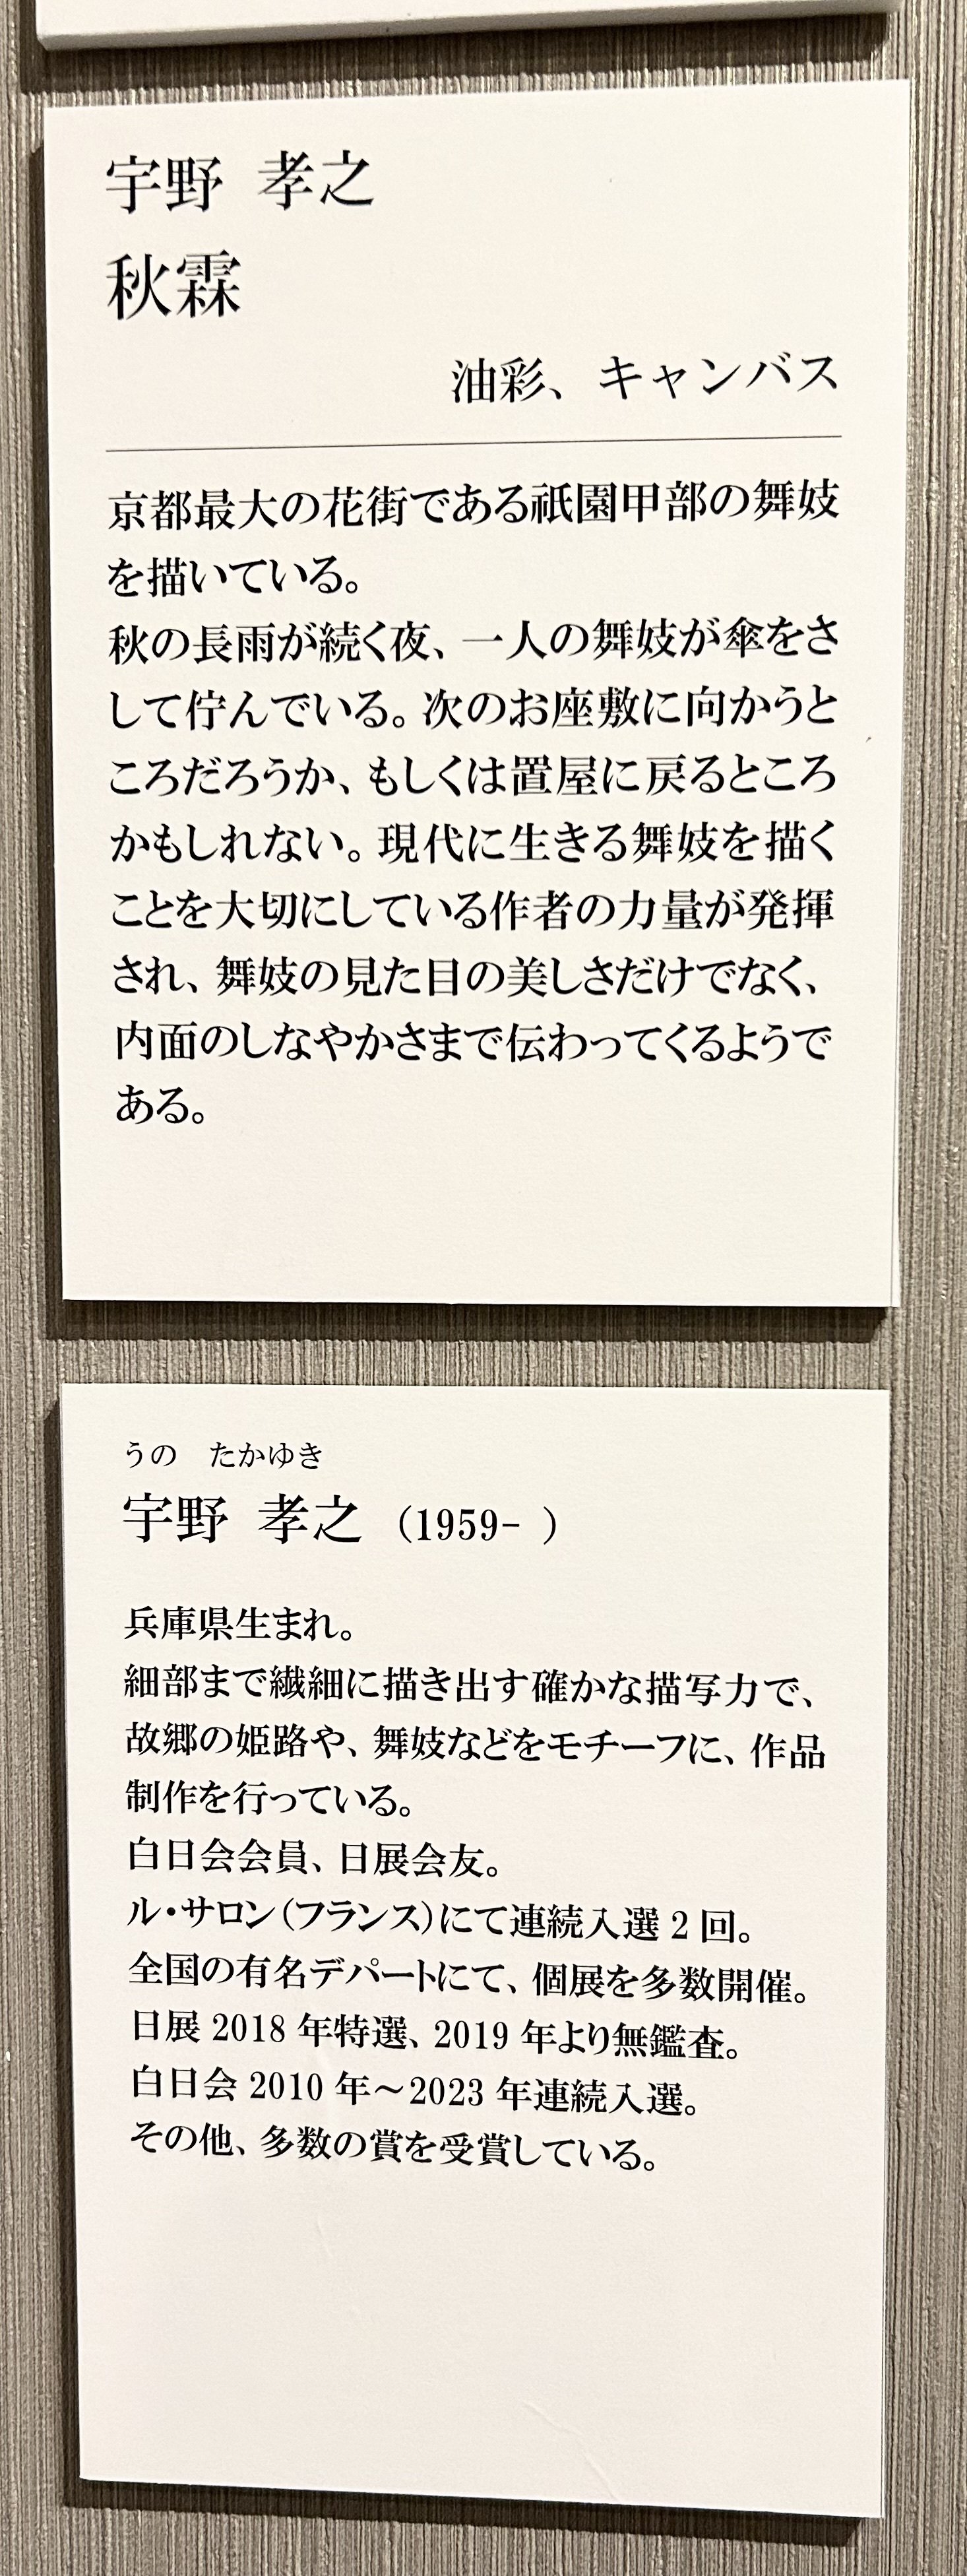 宇野 孝之
秋霖
油彩、キャンバス
京都最大の花街である祇園甲部の舞妓
を描いている。
秋の長雨が続く夜、一人の舞妓が傘をさ
して佇んでいる。次のお座敷に向かうと
ころだろうか、もしくは置屋に戻るところ
かもしれない。現代に生きる舞妓を描く
ことを大切にしている作者の力量が発揮
され、舞妓の見た目の美しさだけでなく、
内面のしなやかさまで伝わってくるようで
ある。
うの たかゆき
宇野 孝之 (1959- )
兵庫県生まれ。
細部まで繊細に描き出す確かな描写力で、
故郷の姫路や、舞妓などをモチーフに、作品
制作を行っている。
白日会会員、日展会友。
ル・サロン(フランス)にて連続入選 2 回。
全国の有名デパートにて、個展を多数開催。
日展 2018 年特選、2019 年より無鑑査。
白日会 2010 年～2023 年連続入選。
その他、多数の賞を受賞している。